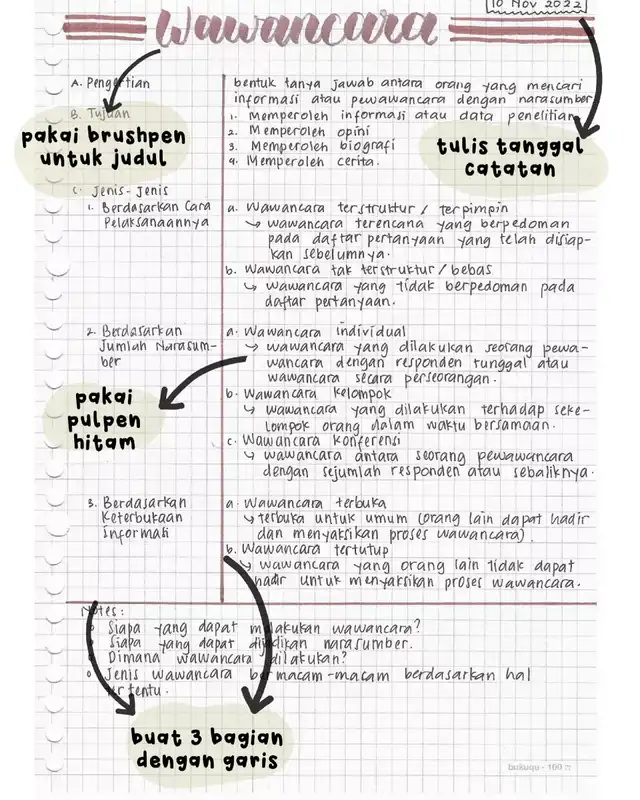 10 Nov 2022
Wawancara
A. Pengertian
bentuk tanya jawab antara orang yang mencari
informasi atau pewawancara dengan narasumber
B. Tujuan
1. Memperoleh informasi atau data penelitian
2. Memperoleh opini
3. Memperoleh biografi
4. Memperoleh cerita.
pakai brushpen
untuk judul
tulis tanggal
catatan
C. Jenis-Jenis
1. Berdasarkan Cara
Pelaksanaannya
a. Wawancara terstruktur / terpimpin
↳ wawancara terencana yang berpedoman
pada daftar pertanyaan yang telah disiap-
kan sebelumnya.
b. Wawancara tak terstruktur / bebas
↳ wawancara yang tidak berpedoman pada
daftar pertanyaan.
2. Berdasarkan
Jumlah Narasum-
ber
a. Wawancara individual
↳ wawancara yang dilakukan seorang pewa-
wancara dengan responden tunggal atau
wawancara secara perseorangan.
b. Wawancara kelompok
↳ wawancara yang dilakukan terhadap seke-
lompok orang dalam waktu bersamaan.
c. Wawancara konferensi
↳ wawancara antara seorang pewawancara
dengan sejumlah responden atau sebaliknya.
pakai
pulpen
hitam
3. Berdasarkan
Keterbukaan
Informasi
a. Wawancara terbuka
↳ terbuka untuk umum (orang lain dapat hadir
dan menyaksikan proses wawancara).
b. Wawancara tertutup
↳ wawancara yang orang lain tidak dapat
hadir untuk menyaksikan proses wawancara.
Notes:
o Siapa yang dapat melakukan wawancara?
o Siapa yang dapat dijadikan narasumber.
o Dimana wawancara dilakukan?
o Jenis wawancara bermacam-macam berdasarkan hal
tertentu.
buat 3 bagian
dengan garis
bukuqu - 100